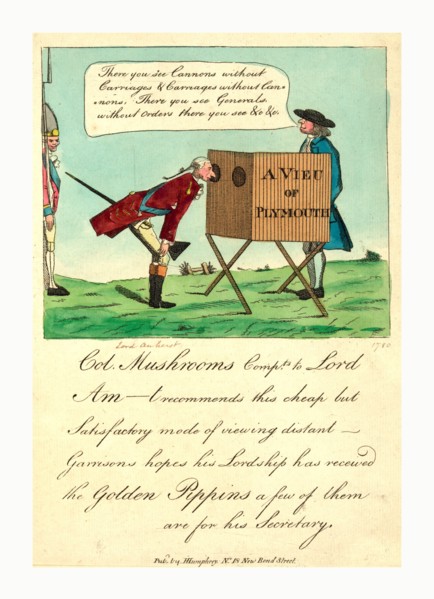 There you see Cannons without
Carriages & Carriages without Can-
nons. There you see Generals
without Orders there you see &c &c.
A VIEU
OF
PLYMOUTH
Lord Amherst
1780
Col. Mushrooms Comp.ts to Lord
Am—t recommends this cheap but
Satisfactory mode of viewing distant
Garrisons hopes his Lordship has received
the Golden Pippins a few of them
are for his Secretary.
Pub. by H Humphrey No. 18 New Bond Street.